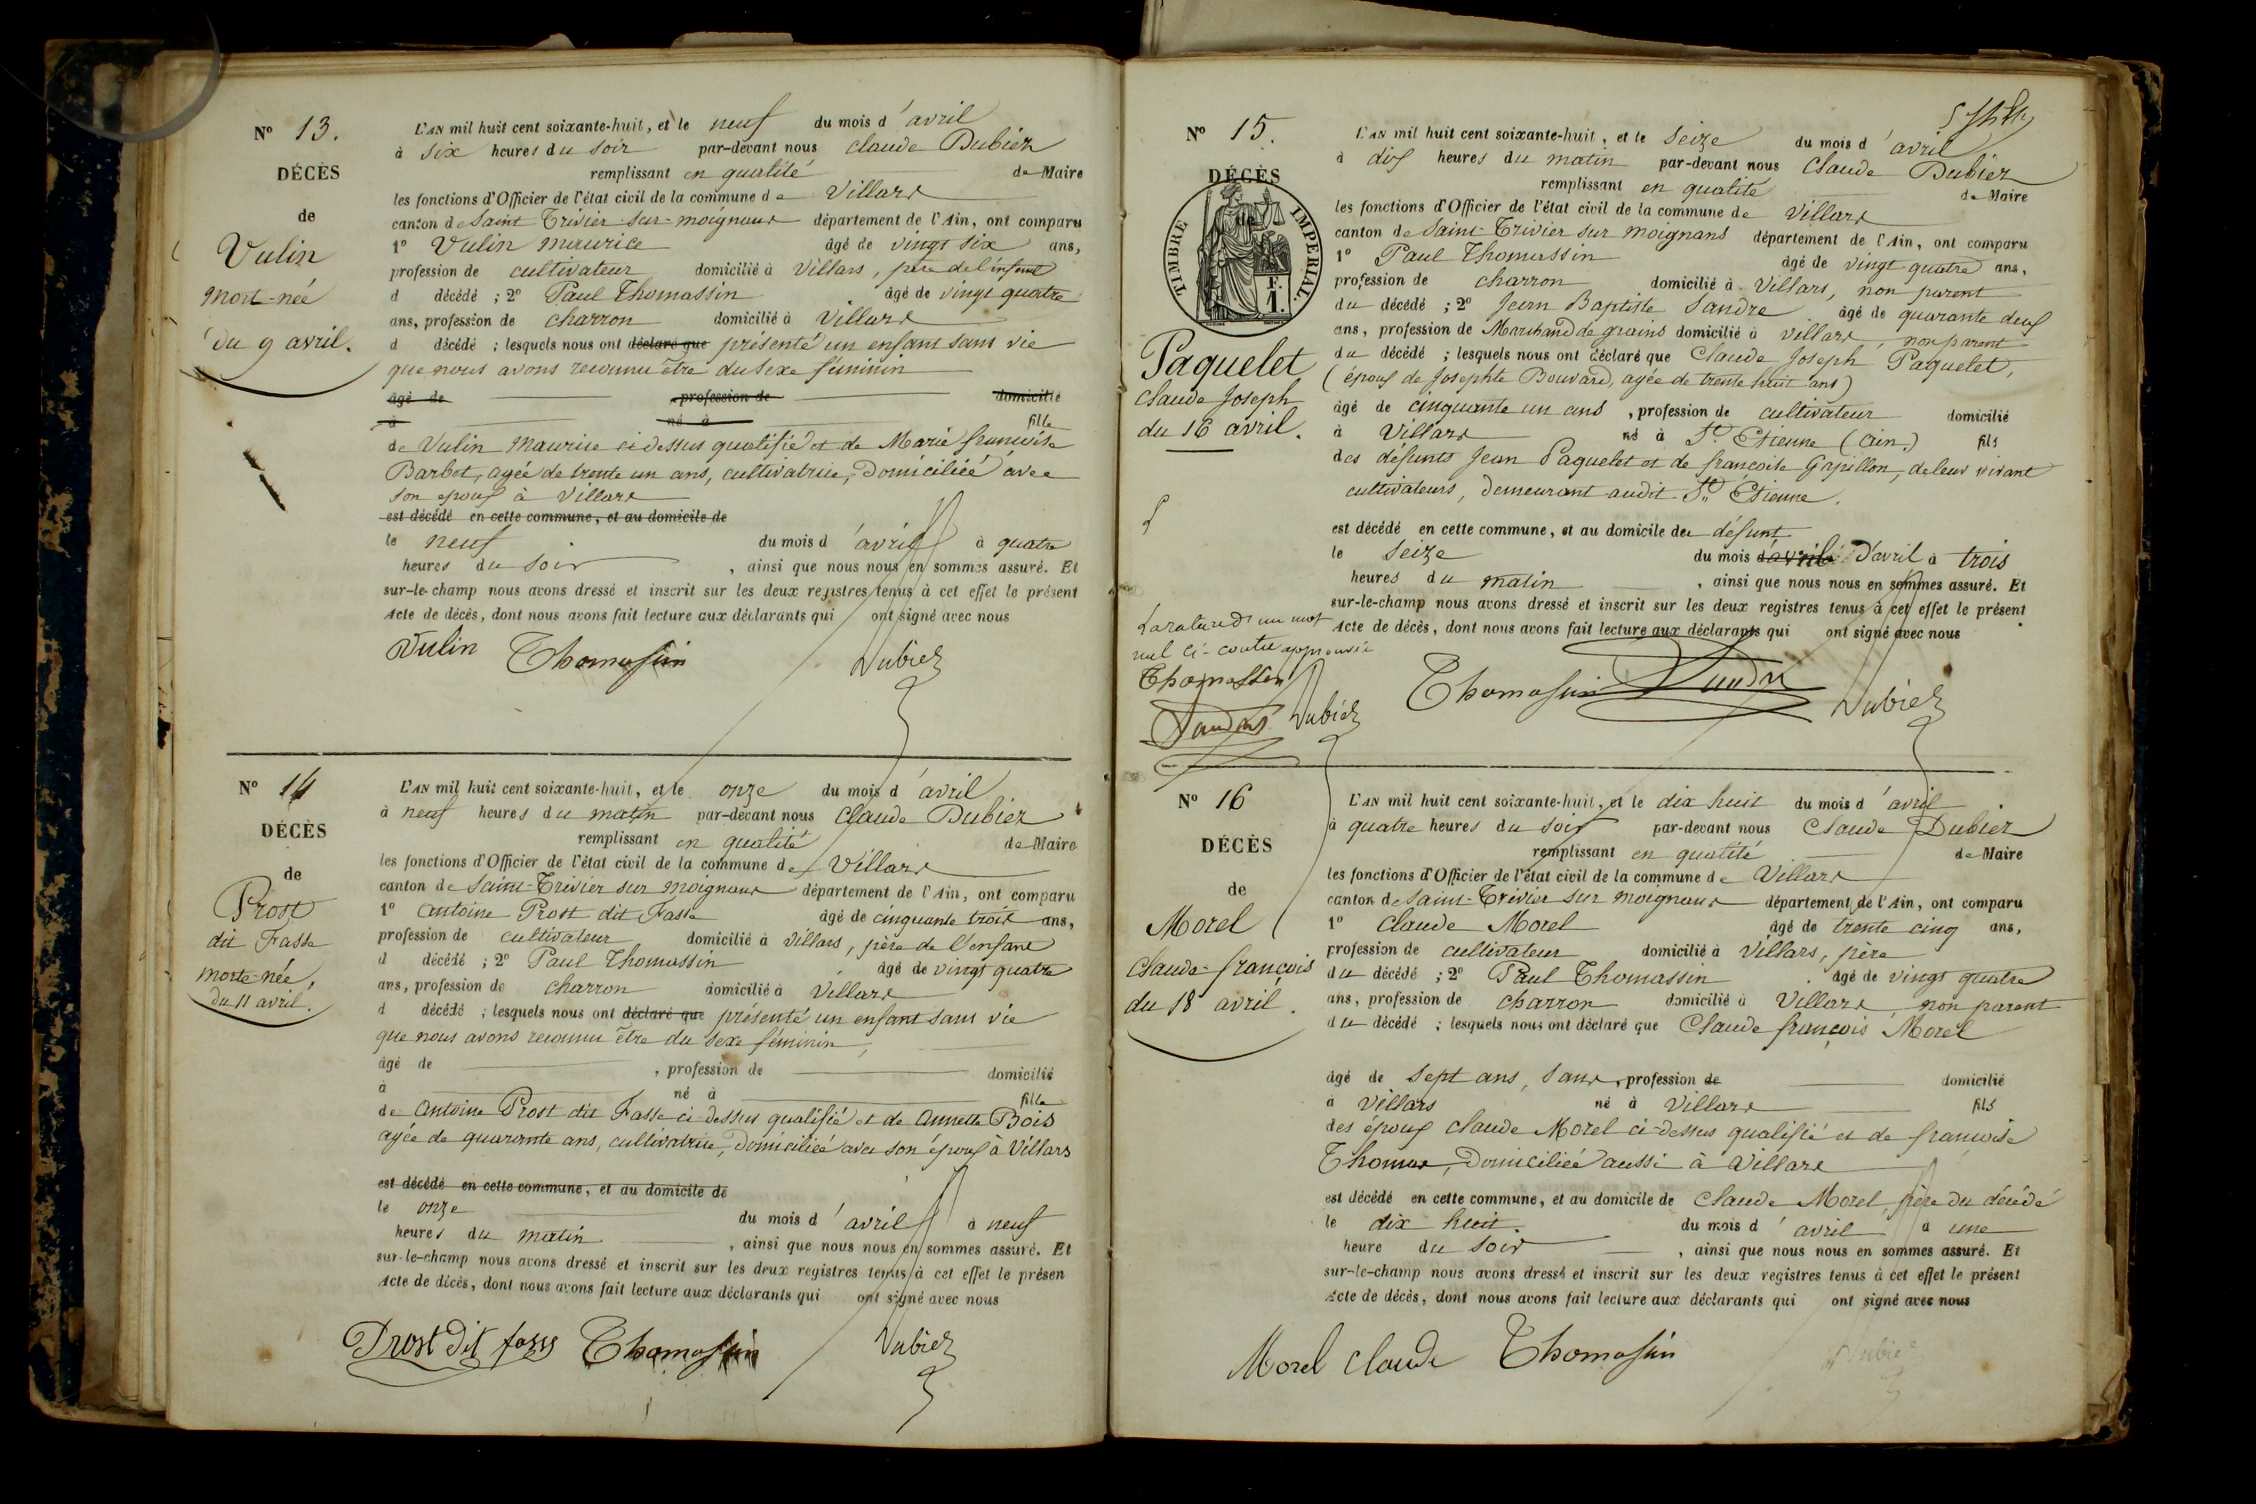 Nº 13.
DÉCÈS
de
Vulin
mort-née
du 9 avril.
L'AN mil huit cent soixante-huit, et le neuf du mois d'avril
à six heures du soir par-devant nous Claude Dubiez
remplissant en qualité de Maire
les fonctions d'Officier de l'état civil de la commune de Villars
canton de Saint Trivier-sur-moignans département de l'Ain, ont comparu
1º Vulin maurice âgé de vingt six ans,
profession de cultivateur domicilié à Villars, père de l'enfant
d décédé ; 2º Paul Thomassin âgé de vingt quatre
ans, profession de charron domicilié à Villars
d décédé ; lesquels nous ont déclaré que présenté un enfant sans vie
que nous avons reconnu être du sexe féminin
âgé de , profession de domicilié
à né à fille
de Vulin maurice ci dessus qualifié et de Marie françoise
Barbet, agée de trente un ans, cultivatrice, domiciliée avec
son epoux à Villars
est décédé en cette commune, et au domicile de
le neuf du mois d'avril à quatre
heures du soir , ainsi que nous nous en sommes assuré. Et
sur-le-champ nous avons dressé et inscrit sur les deux registres tenus à cet effet le présent
Acte de décès, dont nous avons fait lecture aux déclarants qui ont signé avec nous
Vulin Thomassin Dubiez
Nº 14
DÉCÈS
de
Prost
dit Fasse
morte-née,
du 11 avril.
L'AN mil huit cent soixante-huit, et le onze du mois d'avril
à neuf heures du matin par-devant nous Claude Dubiez
remplissant en qualité de Maire
les fonctions d'Officier de l'état civil de la commune de Villars
canton de Saint-Trivier sur moignans département de l'Ain, ont comparu
1º Antoine Prost dit Fasse âgé de cinquante trois ans,
profession de cultivateur domicilié à Villars, père de l'enfant
d décédé ; 2º Paul Thomassin âgé de vingt quatre
ans, profession de charron domicilié à Villars
d décédé ; lesquels nous ont déclaré que présenté un enfant sans vie
que nous avons reconnu être du sexe féminin,
âgé de , profession de domicilié
à né à fille
de Antoine Prost dit Fasse ci dessus qualifié et de Annette Bois
agée de quarante ans, cultivatrice, domiciliée avec son époux à Villars
est décédé en cette commune, et au domicile de
le onze du mois d'avril à neuf
heures du matin , ainsi que nous nous en sommes assuré. Et
sur-le-champ nous avons dressé et inscrit sur les deux registres tenus à cet effet le présen
Acte de décès, dont nous avons fait lecture aux déclarants qui ont signé avec nous
Prost dit fasse Thomassin Dubiez
Nº 15.
DÉCÈS
de
TIMBRE IMPERIAL.
F.
1.
Paquelet
Claude Joseph
du 16 avril.
L'AN mil huit cent soixante-huit, et le seize du mois d'avril
à dix heures du matin par-devant nous Claude Dubiez
remplissant en qualité de Maire
les fonctions d'Officier de l'état civil de la commune de Villars
canton de Saint-Trivier sur moignans département de l'Ain, ont comparu
1º Paul Thomassin âgé de vingt quatre ans,
profession de charron domicilié à Villars, non parent
du décédé ; 2º Jean Baptiste Sandre âgé de quarante deux
ans, profession de Marchand de grains domicilié à Villars, non parent
du décédé ; lesquels nous ont déclaré que Claude Joseph Paquelet,
(époux de Josephte Bouvard, agée de trente huit ans)
âgé de cinquante un ans , profession de cultivateur domicilié
à Villars né à St. Etienne (Ain) fils
des défunts Jean Paquelet et de françoise Gapillon, de leur vivant
cultivateurs, demeurant audit St. Etienne.
est décédé en cette commune, et au domicile deu défunt
le seize du mois d'avril d'avril à trois
heures du matin , ainsi que nous nous en sommes assuré. Et
sur-le-champ nous avons dressé et inscrit sur les deux registres tenus à cet effet le présent
Acte de décès, dont nous avons fait lecture aux déclarants qui ont signé avec nous
La rature d'un mot
nul ci-contre approuvée
Thomassin
Sandre Dubiez
Thomassin Sandre Dubiez
Nº 16
DÉCÈS
de
Morel
Claude-françois
du 18 avril.
L'AN mil huit cent soixante-huit, et le dix huit du mois d'avril
à quatre heures du soir par-devant nous Claude Dubiez
remplissant en qualité de Maire
les fonctions d'Officier de l'état civil de la commune de Villars
canton de Saint-Trivier sur moignans département de l'Ain, ont comparu
1º Claude Morel âgé de trente cinq ans,
profession de cultivateur domicilié à Villars, père
du décédé ; 2º Paul Thomassin âgé de vingt quatre
ans, profession de charron domicilié à Villars, non parent
du décédé ; lesquels nous ont déclaré que Claude françois Morel
âgé de sept ans, sans , profession de domicilié
à Villars né à Villars fils
des époux Claude Morel ci-dessus qualifié et de françoise
Thomas, domiciliée aussi à Villars
est décédé en cette commune, et au domicile de Claude Morel, père du décédé
le dix huit. du mois d'avril à une
heure du soir , ainsi que nous nous en sommes assuré. Et
sur-le-champ nous avons dressé et inscrit sur les deux registres tenus à cet effet le présent
Acte de décès, dont nous avons fait lecture aux déclarants qui ont signé avec nous
Morel Claude Thomassin Dubiez